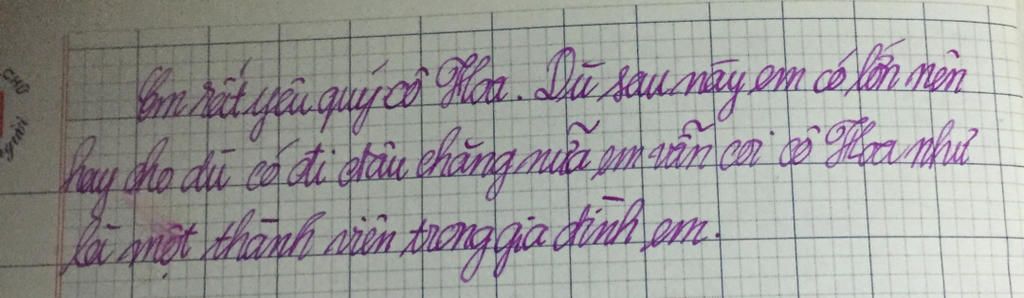 Em rất yêu quý cô Hoa. Dù sau này em có lớn nên
hay cho dù có đi đâu chăng nữa em vẫn coi cô Hoa như
là một thành viên trong gia đình em.